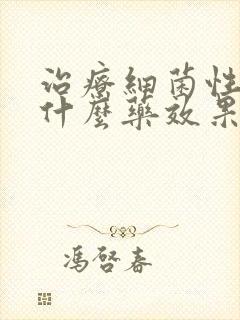 治療細菌性
什麼藥效果
馮啓春